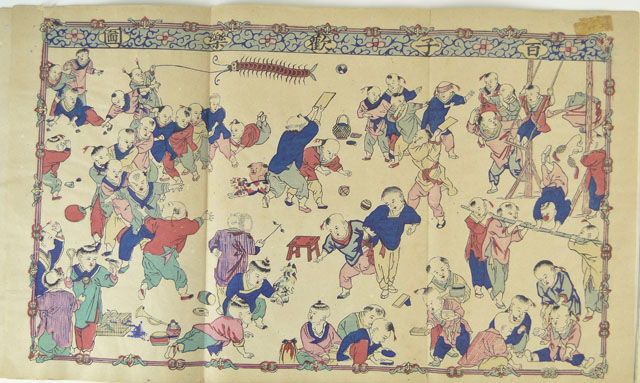 百子歡樂圖